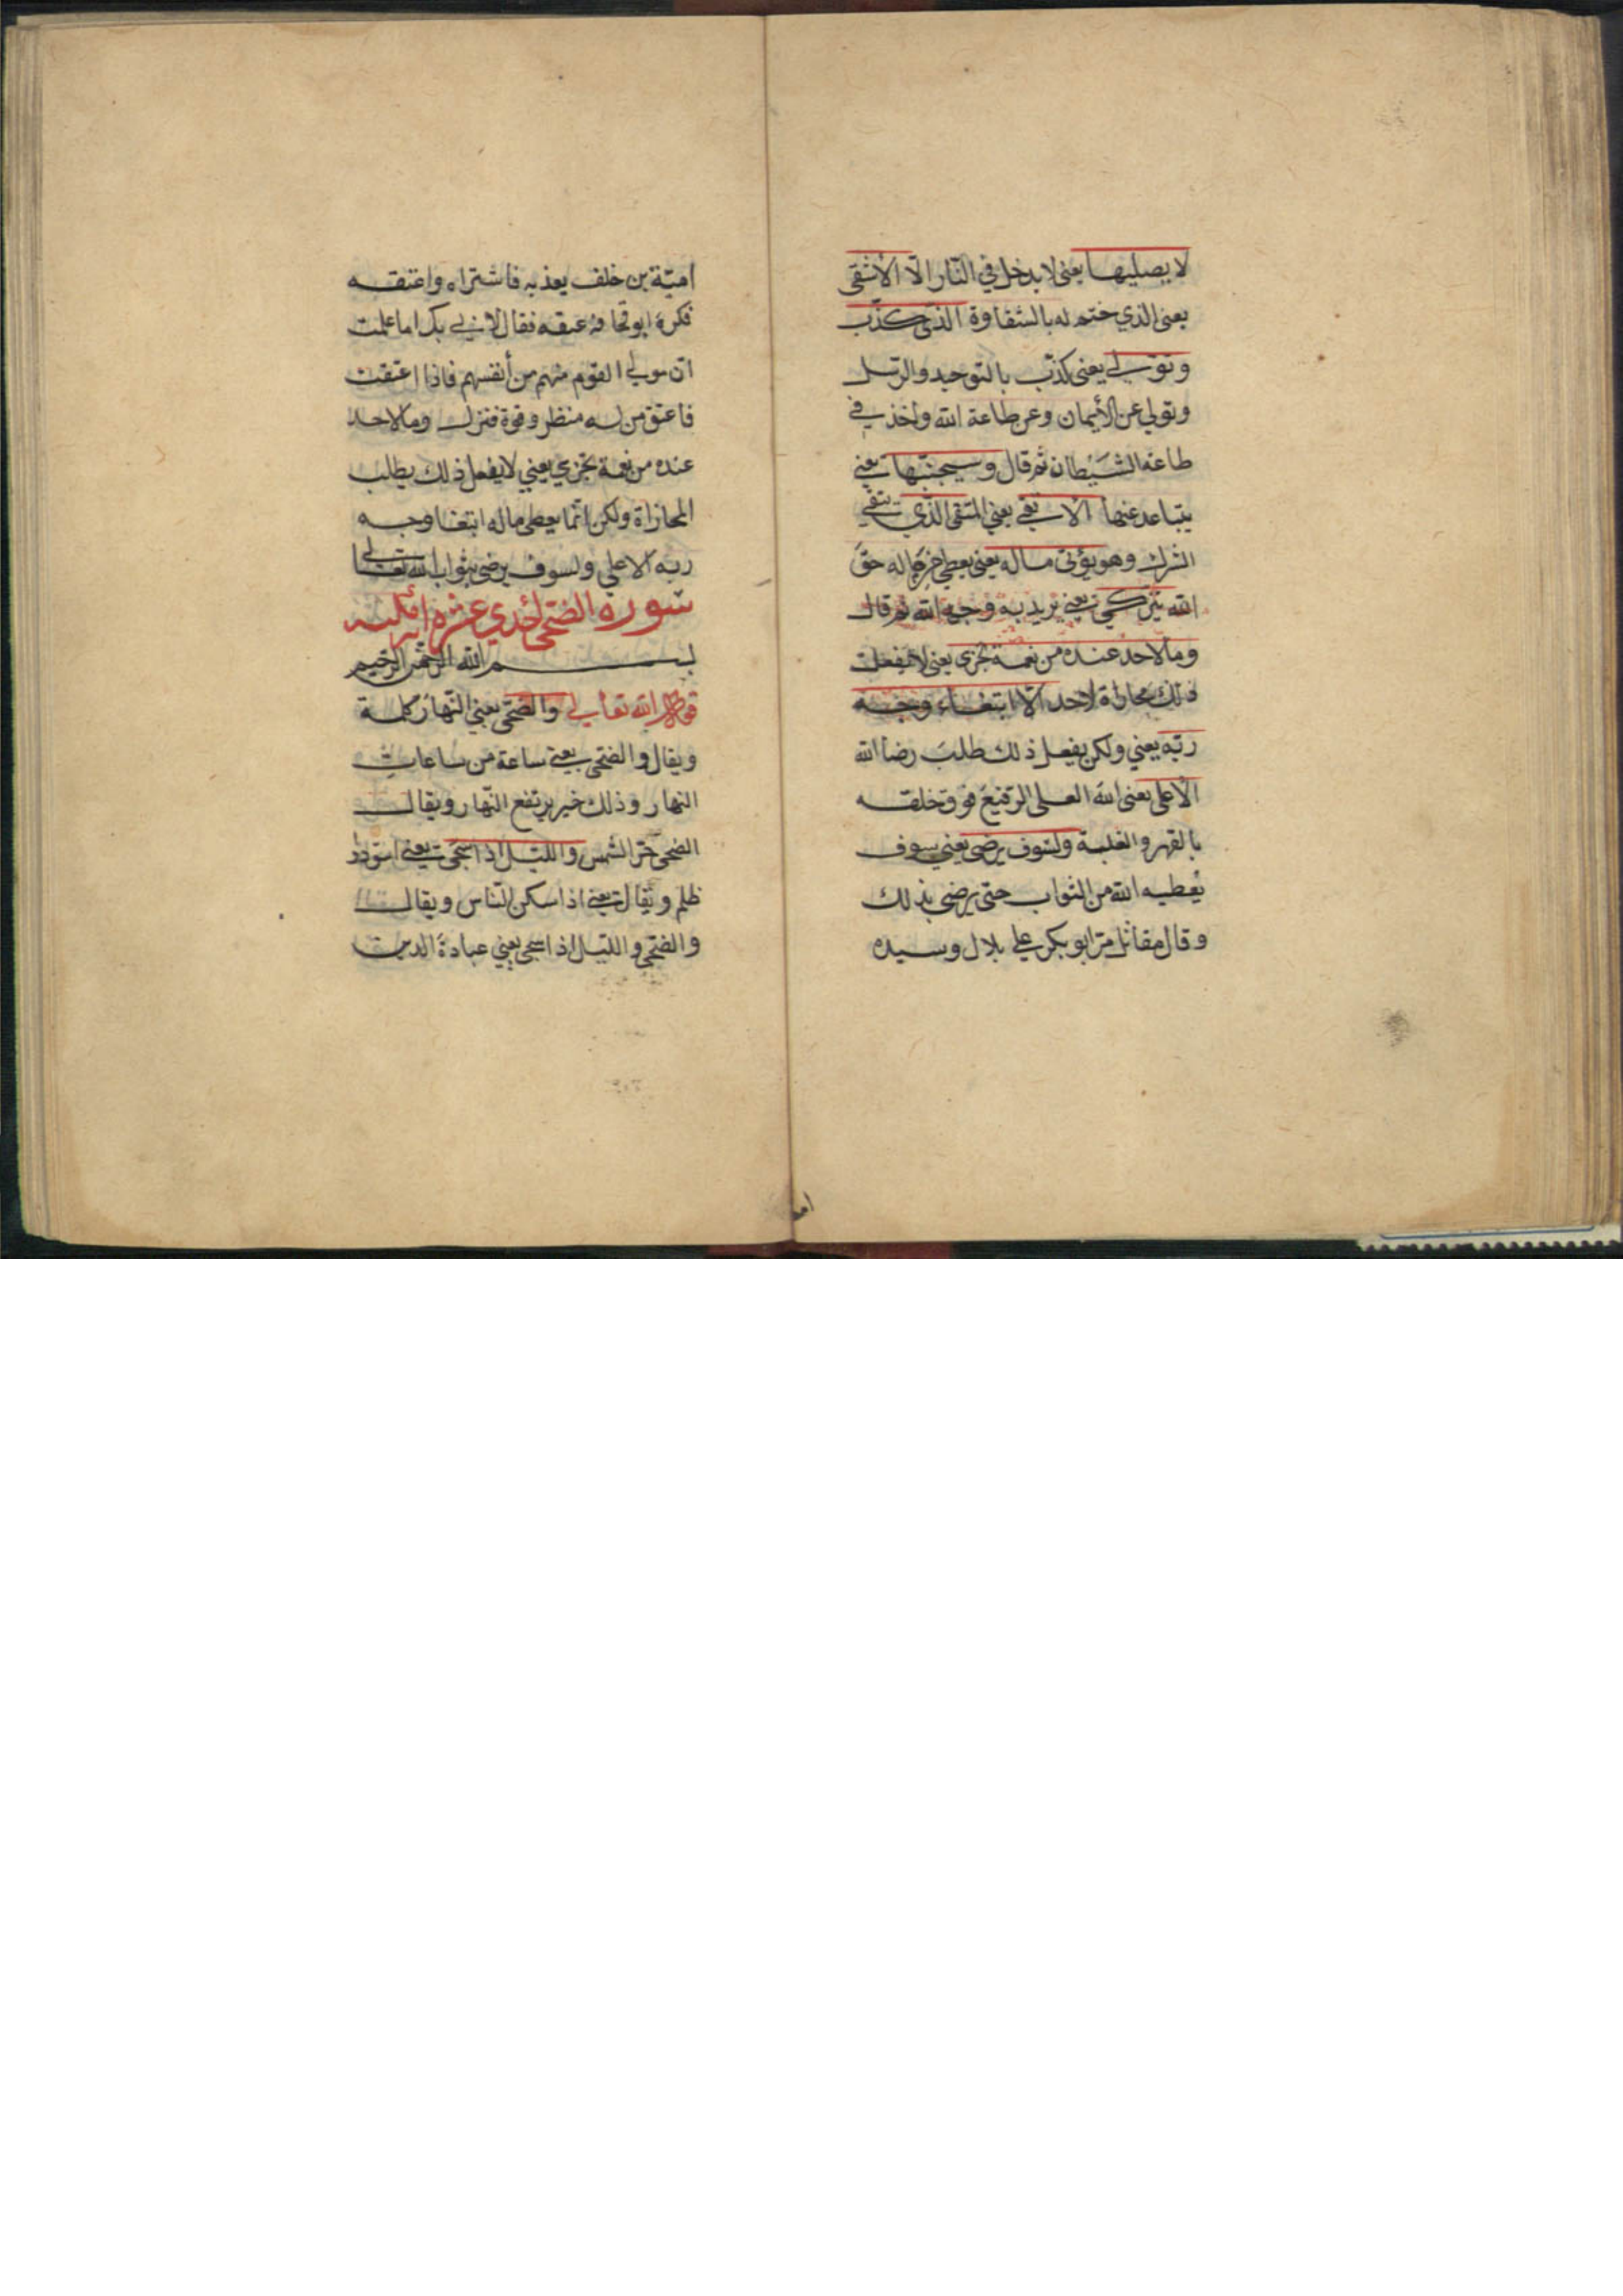 لا يصليها يعنى لا يدخل في النار الّا الأشقى
يعنى الذي ختم له بالشقاوة الذى كذّب
وتوّلى يعنى كذّب بالتوحيد والرّسل
وتولي عن الأيمان وعن طاعة الله واخذ في
طاعة الشيطان ثم قال وسيجنّبها يعني
يتباعد عنها الاتقى يعني المتقى الذّي يتقي
الشرك وهو يؤتى ماله يعنى يعطي من ماله حقّ
الله يتزكى يعني يريد به وجه الله ثم قال
وما لاحد عنده من نعمة تجزى يعنى لا يفعل
ذلك مجازاة لاحد الّا ابتغاء وجه
ربّه يعني ولكن يفعل ذلك طلب رضا الله
الاعلى يعنى الله العلى الرفيع فوق خلقه
بالقهر والغلبة ولسوف يرضى يعني سوف
يُعطيه الله من الثواب حتى يرضى بذلك
وقال مقاتل مرّ ابو بكر علي بلال وسيده
امية
اميّة بن خلف يعذبه فاشتراه واعتقه
فكره ابو قحافة عتقه فقال لابي بكر اما علمت
انّ مولي القوم منهم من أنفسهم فاذا اعتقت
فاعتق من له منظر وقوة فنزل وما لاحد
عنده من نعمة تجزي يعني لا يفعل ذلك يطلب
المجازاة ولكن انّما يعطي ماله ابتغا وجه
ربه الاعلي ولسوف يرضي بثواب الله تعالى
سورة الضحى احدي عشرة اية مكية
بسم الله الرحمن الرحيم
قوله تعالي والضحى يعني النّهار كلّه
ويقال والضحى يعني ساعة من ساعات
النهار وذلك حين يرتفع النّهار ويقال
الضحى حرّ الشمس واللّيل اذا سجى يعني اسودّ
ظلم ويُقال يعني اذا سكن النّاس ويقال
والضحى واللّيل اذا سجى يعني عبادة الذين